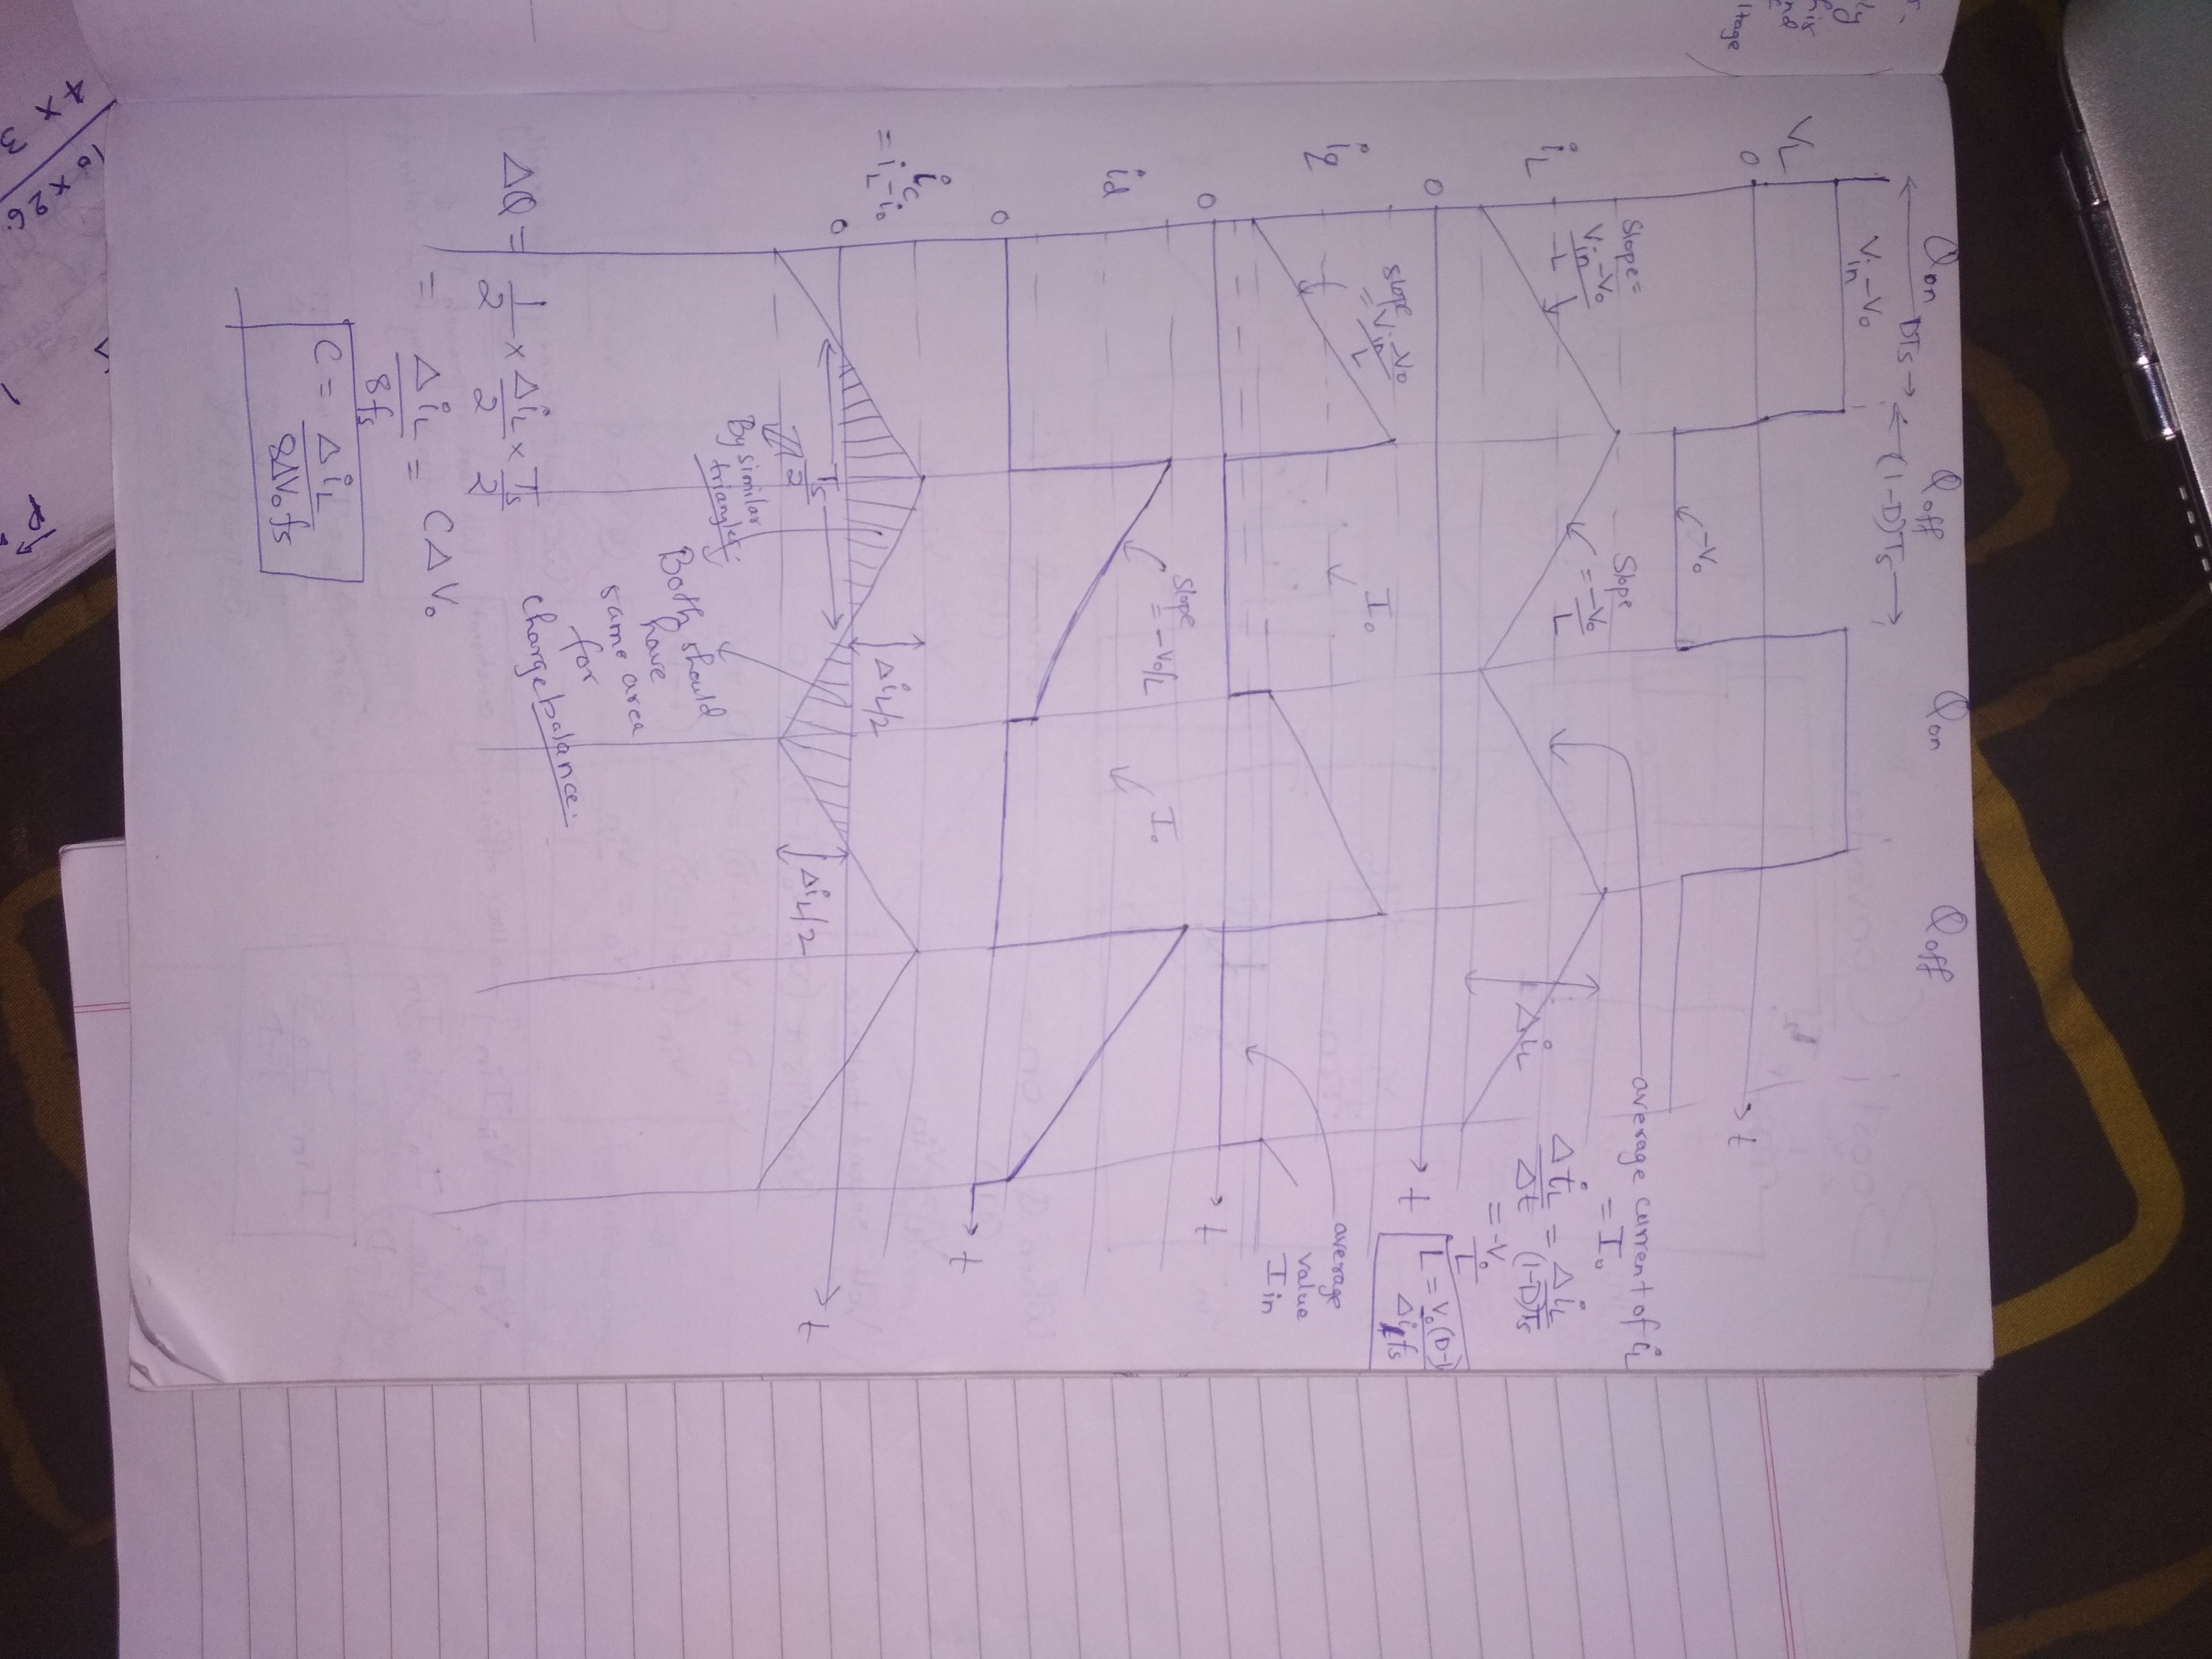 Qon Qoff Qon Qoff
DTs (1-D)Ts
VL
Vin-Vo
-Vo
0
t
iL
Slope=
Vin-Vo
L
Slope
= -Vo
L
average current of iL
= Io
ΔiL
ΔiL = ΔiL
Δt (1-D)Ts
= -Vo
L
L = Vo(D-1)
ΔiLfs
0
t
iq
slope
= Vin-Vo
L
Io
average
value
Iin
0
t
id
slope
= -Vo/L
Io
0
t
ic
= iL-io
0
Ts
2
ΔiL/2
ΔiL/2
t
By similar
triangles.
Both should
have
same area
for
charge balance.
ΔQ = 1 × ΔiL × Ts
2 2 2
= ΔiL = CΔVo
8fs
C = ΔiL
8ΔVofs